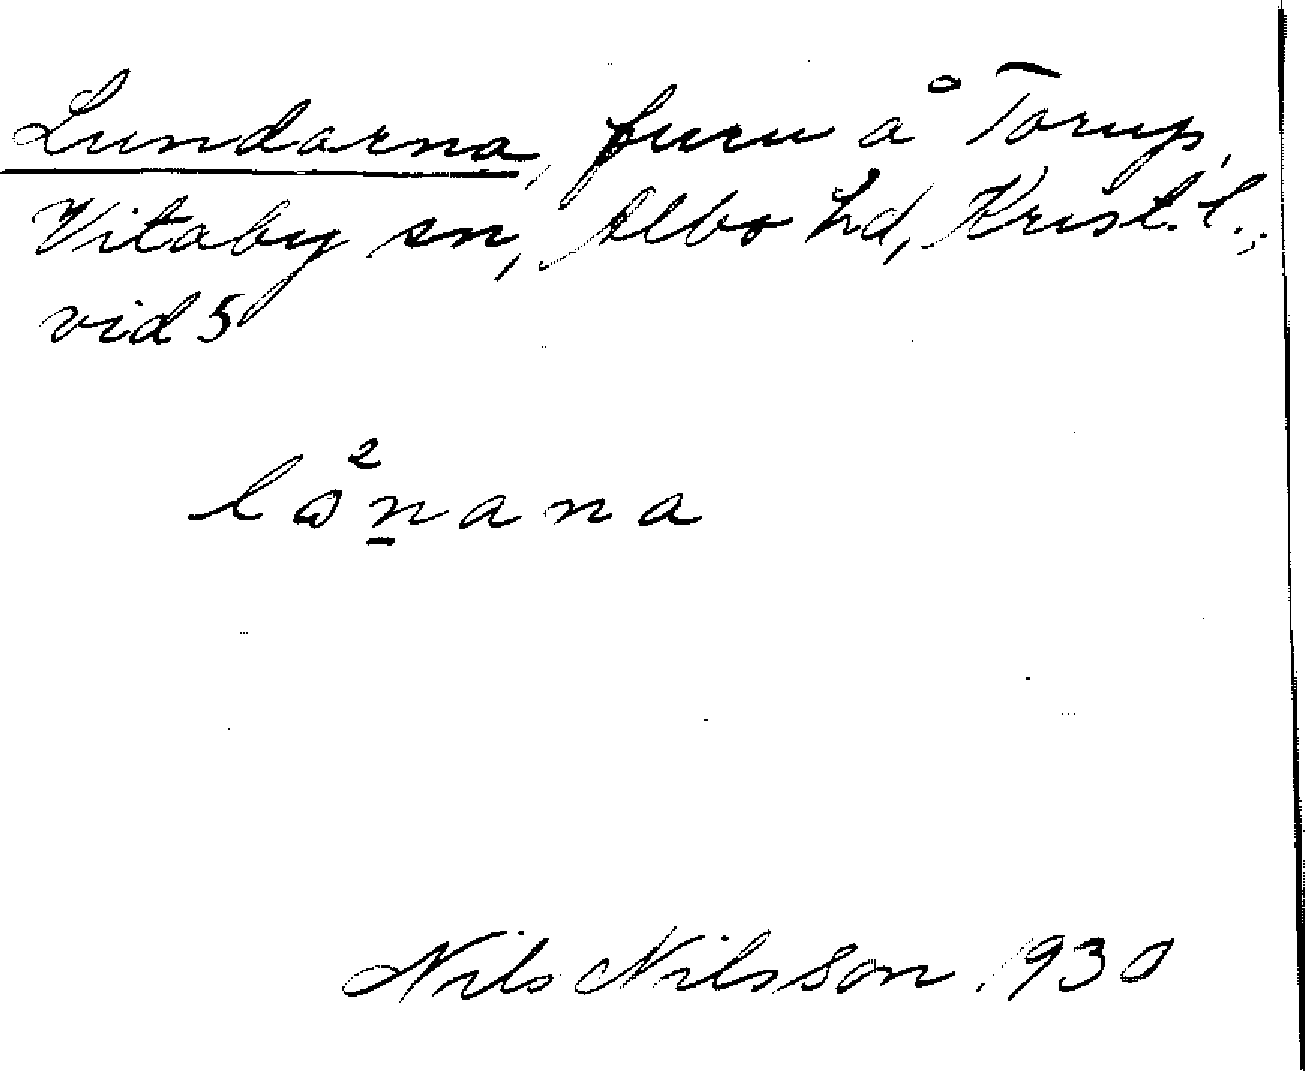 Lundarna, furu å Torup,
Vitaby sn, Albo hd, Krist. l.,
vid 5
2
lωn̠ana
Nils Nilsson 1930